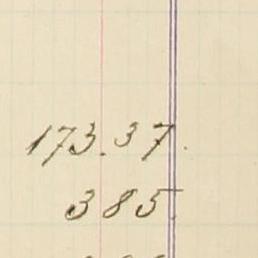 173.37
385